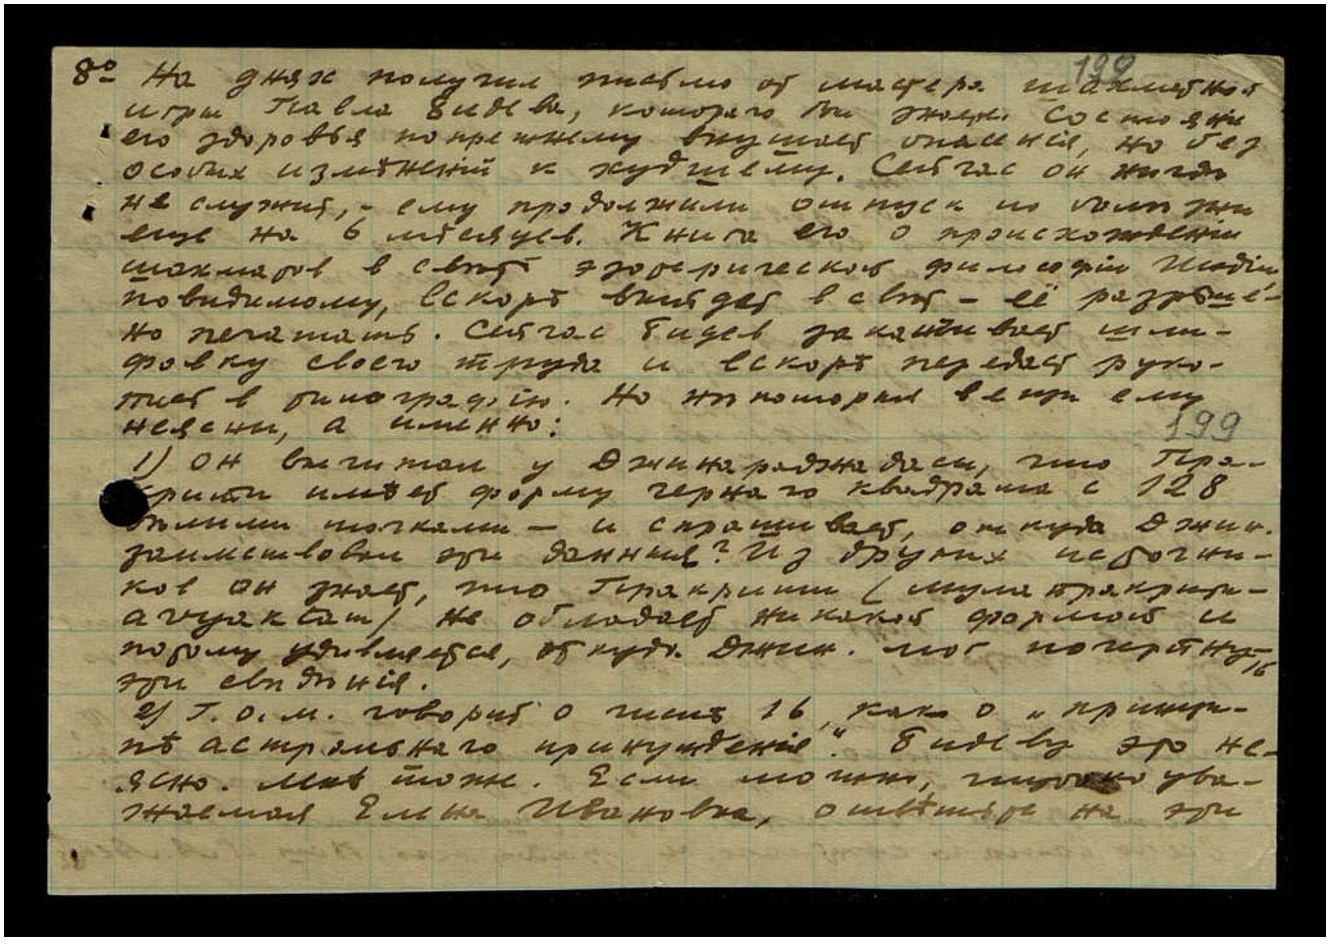 199
8º На днях получил письмо от мастера шахматной
игры Павла Бидева, которого Вы знаете. Состояніе
его здоровья попрежнему внушает опасенія, но без
особых измѣненій к худшему. Сейчас он нигдѣ
не служит, - ему продолжили отпуск по болѣзни
еще на 6 мѣсяцев. Книга его о происхожденіи
шахматов в свѣтѣ эзотерической философіи Индіи,
повидимому, вскорѣ выйдет в свѣт – её разрѣше-
но печатать. Сейчас Бидев заканчивает шли-
фовку своего труда и вскорѣ передаст руко-
пись в типографію. Но нѣкоторыя вещи ему
неясны, а именно:
199
1) Он вычитал у Джинараджадасы, что Пра-
крити имѣет форму чернаго квадрата с 128
бѣлыми точками – и спрашивает, откуда Джин.
заимствовал эти данныя? Из других источни-
ков он знает, что Пракрити (мулапракрити-
) не обладает никакой формой и
потому удивляется, откуда Джин. мог почерпнуть
эти свѣдѣнія.
2) Г.О.М. говорит о числѣ 16, как о „принци-
пѣ астральнаго принужденія“. Бидеву это не-
ясно. Мнѣ тоже. Если можно, глубокоува-
жаемая Елена Ивановна, отвѣтьте на эти